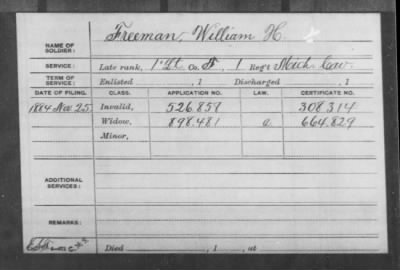 Freeman, William H.
NAME OF SOLDIER:
SERVICE: Late rank, 1" Lt Co. F, 1 Reg't Mich. Cav.
TERM OF SERVICE: Enlisted , 1 Discharged , 1
DATE OF FILING. CLASS. APPLICATION NO. LAW. CERTIFICATE NO.
1884 Nov. 25 Invalid, 526.859 308314
Widow, 898.481 a 664.829
Minor,
ADDITIONAL SERVICES:
REMARKS:
Died , 1 , at